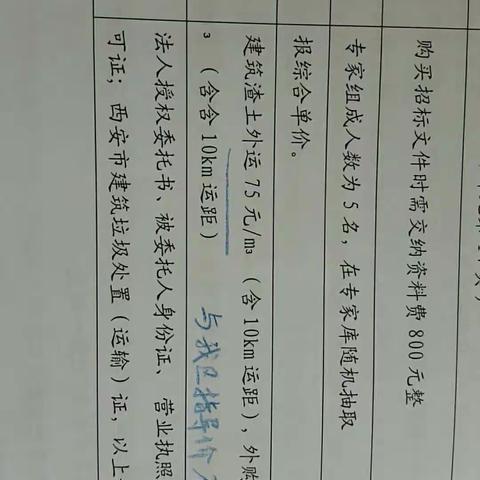 购买招标文件时需交纳资料费 800 元整
专家组成人数为 5 名，在专家库随机抽取
报综合单价。
建筑渣土外运 75 元/m³ （含 10km 运距），外购
³ （含含 10km 运距）
与我区指导价
法人授权委托书、被委托人身份证、营业执照
可证；西安市建筑垃圾处置（运输）证，以上